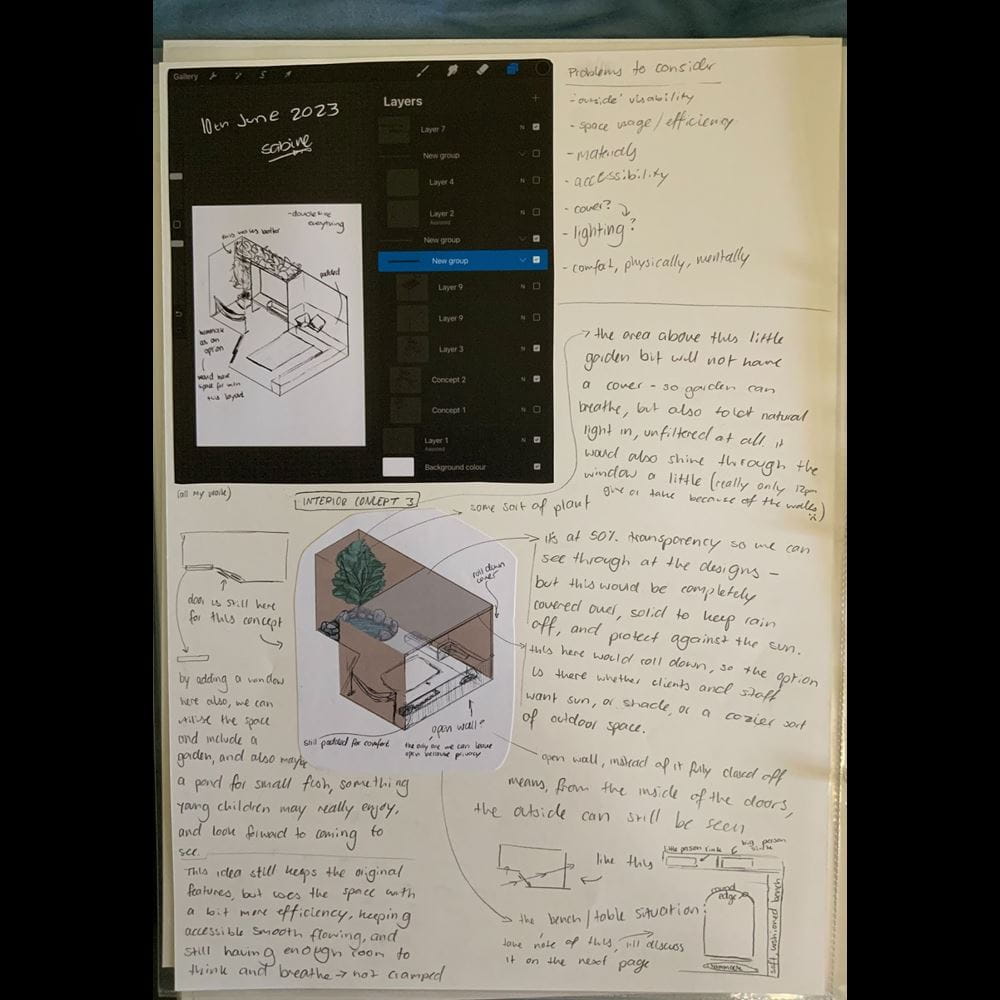 Gallery
10th June 2023
sabine
Layers
Layer 7
N
New group
Layer 4
N
Layer 2
N
Assisted
New group
New group
Layer 9
N
Layer 9
N
Layer 3
N
Concept 2
N
Concept 1
N
Layer 1
N
Assisted
Background colour
everything
this works better
padded
hammock
as an
option
would have
space for
this layout
Problems to consider
- 'outside' visability
- space usage / efficiency
- materials
- accessibility
- cover?
- lighting?
- comfort, physically, mentally
the area above this little
garden bit will not have
a cover - so garden can
breathe, but also to let natural
light in, unfiltered at all. it
would also shine through the
window a little (really only 12pm
give or take because of the walls)
(all my work)
INTERIOR CONCEPT 3
some sort of plant
roll down
cover
its at 50% transparency so we can
see through at the designs -
but this would be completely
covered over, solid to keep rain
off, and protect against the sun.
this here would roll down, so the option
is there whether clients and staff
want sun, or shade, or a cozier sort
of outdoor space.
door is still here
for this concept
by adding a window
here also, we can
utilise the space
and include a
garden, and also maybe
a pond for small fish, something
young children may really enjoy,
and look forward to coming to
see.
still padded for comfort
open wall?
the only one we can leave
open because privacy
open wall, instead of it fully closed off
means, from the inside of the doors,
the outside can still be seen
like this
little person sink
big person
sink
round
edge
hammock
soft, cushioned bench
the bench/table situation
take note of this, ill discuss
it on the next page
This idea still keeps the original
features, but uses the space with
a bit more efficiency, keeping
accessible smooth flowing, and
still having enough room to
think and breathe → not cramped